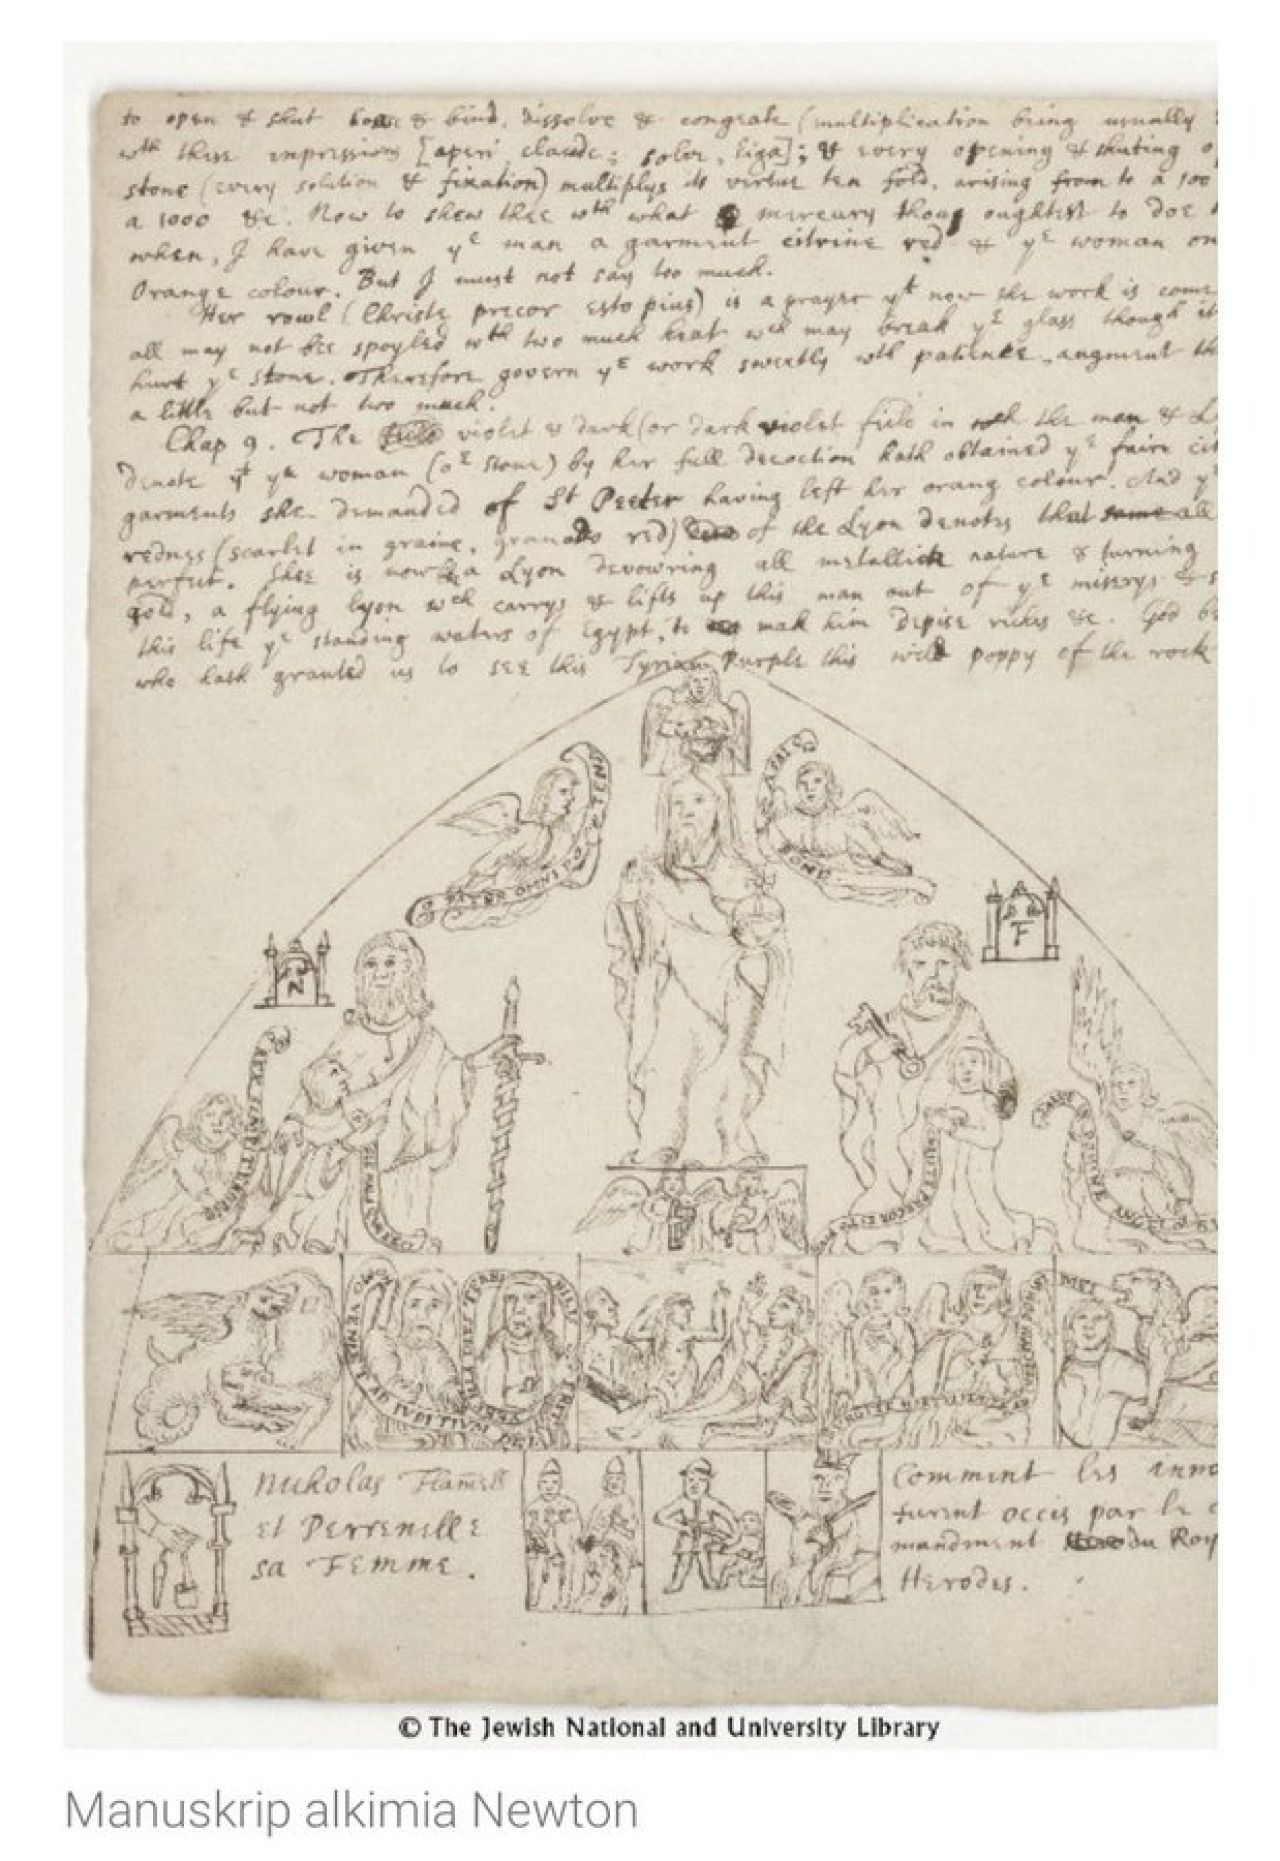 to open & shut loose & bind, dissolve & congeale (multiplication being usually
wth these impressions [aperi, claude; solve, liga]; & every opening & shutting o
stone (every solution & fixation) multiplys its virtue ten fold, arising from to a 100
a 1000 &c. Now to shew thee wth what mercury thou oughtest to doe
when, I have given ye man a garment citrine red & ye woman on
Orange colour. But I must not say too much.
Her rowl (Christe precor esto pius) is a prayer yt now the work is come
all may not bee spoyled wth two much heat wch may break ye glass though it
hurt ye stone. Therefore govern ye work sweetly wth patience, augment th
a little but not two much.
Chap 9. The violet & dark (or dark violet field in wch the man &
Denote yt ye woman (oe stone) by her full decoction hath obtained ye fair cit
garments she demanded of St Peeter having left her orang colour. And y
rednes (scarlet in graine, granado red) of the Lyon denotes that same all
perfect. Shee is now a Lyon devowring all metallick nature & turning
gold, a flying lyon wch carrys & lifts up this man out of ye miserys &
this life ye standing waters of Egypt, to mak him depise riches &c. God be
who hath granted us to see this Tyrian Purple this wild poppy of the rock
O PATER OMNIPOTENS
BONE
N
F
O REX SEMPITERNE
CHRISTE PRECOR ESTO
SALVE DOMINE ANGELORUM
Nicholas Flamell
et Perrenelle
sa Femme.
Comment les inno
furent occis par le c
mandment du Roy
Herodes.
© The Jewish National and University Library
Manuskrip alkimia Newton